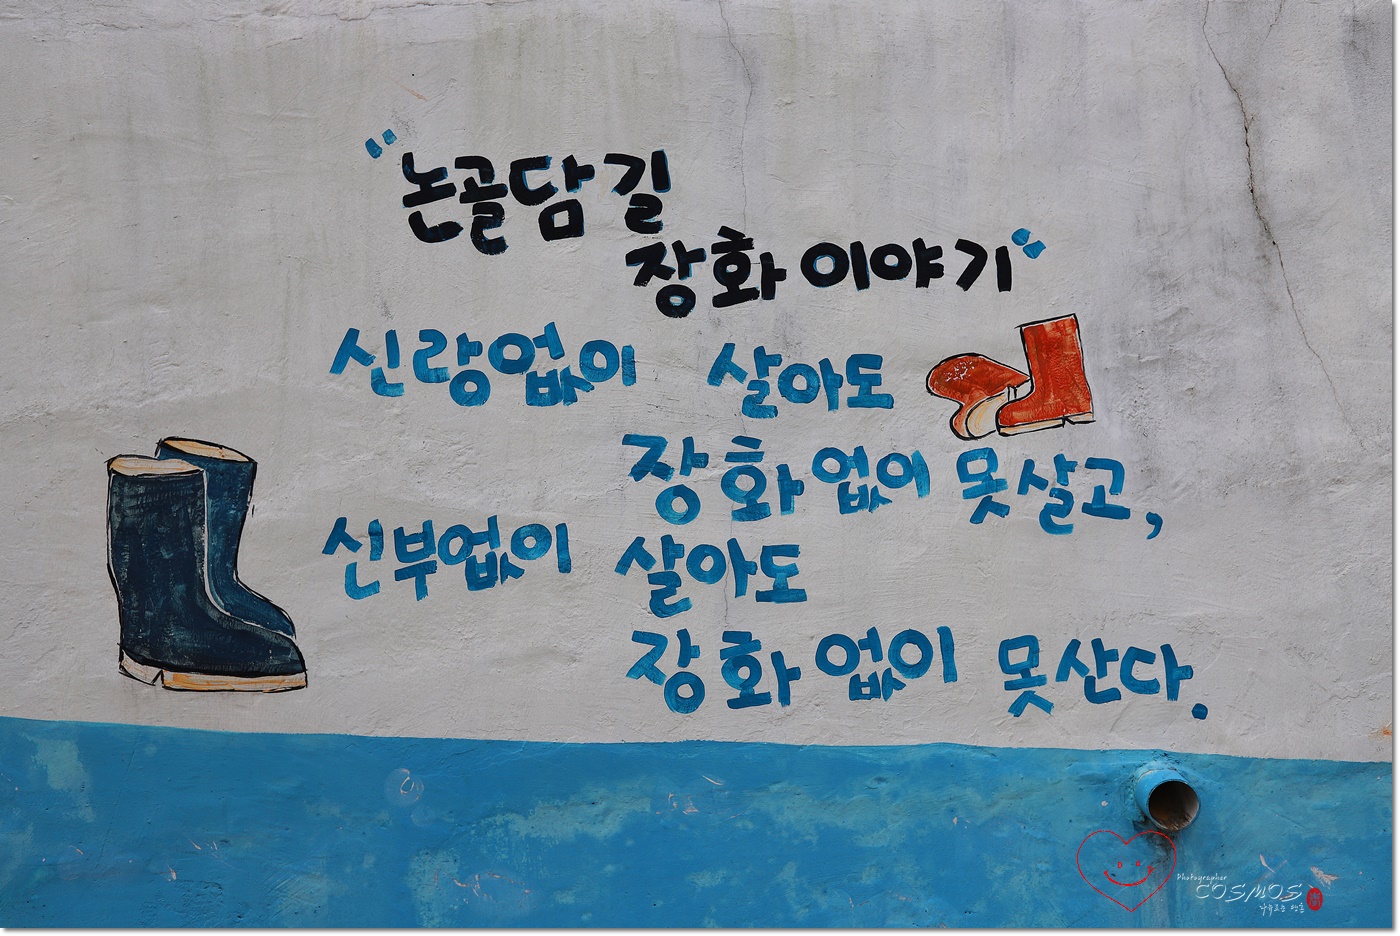 "논골담길
장화 이야기"
신랑없이 살아도
장화 없이 못살고,
신부없이 살아도
장화 없이 못산다.
Photographer
COSMOS